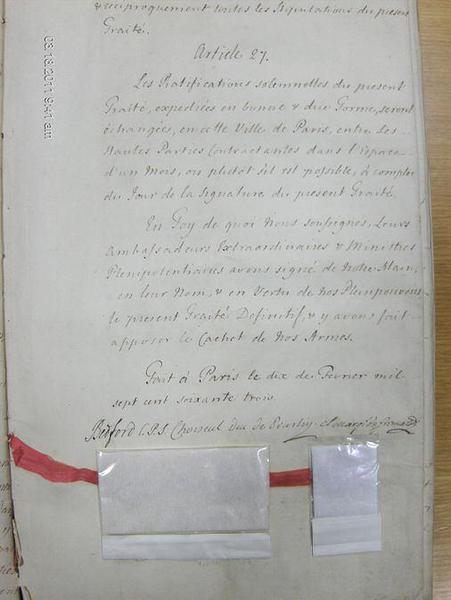 & réciproquement toutes les Stipulations du présent
Traité.
Article 27.
Les Ratifications solemnelles du present
Traité, expediées en bonne & due Forme, seront
échangées, en cette Ville de Paris, entre les
Hautes Parties Contractantes dans l'Espace
d'un Mois, ou plutôt s'il est possible, à compter
du Jour de la Signature du present Traité.
En Foy de quoi Nous soussignés, Leurs
Ambassadeurs Extraordinaires & Ministres
Plenipotentiaires avons signé de Notre Main,
en leur Nom, & en Vertu de Nos Pleinpouvoirs
le present Traité Definitif, & y avons fait
apposer le Cachet de Nos Armes.
Fait à Paris le dix de Fevrier mil
sept cent soixante trois
Bedford C.P.S. Choiseul Duc de Praslin
03.18.2011 9:41 am